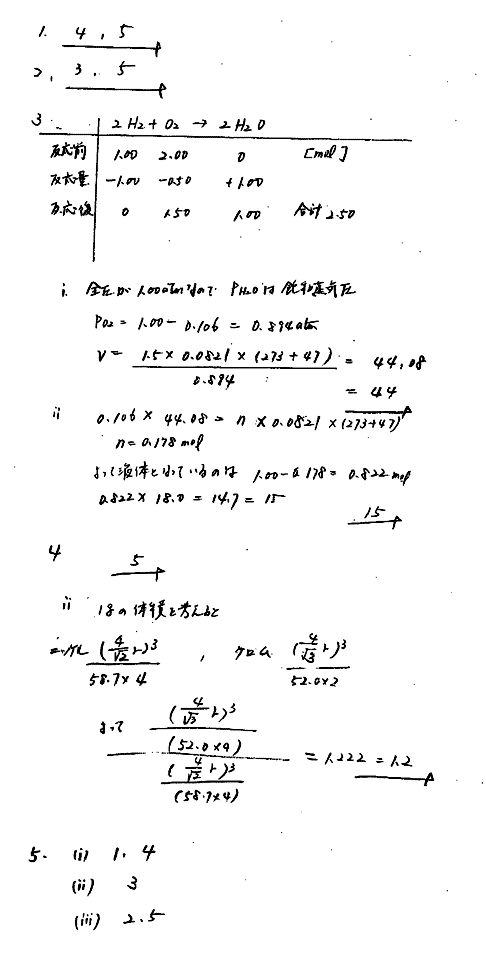 1. 4, 5
2, 3, 5
3. 2H2 + O2 → 2H2O
反応前 1.00 2.00 0 [mol]
反応量 -1.00 -0.50 +1.00
反応後 0 1.50 1.00 合計 2.50
i. 全圧が1.00atmなので PH2Oは飽和蒸気圧
PO2 = 1.00 - 0.106 = 0.894atm
V = 1.5 × 0.0821 × (273+47) / 0.894 = 44.08
= 44
ii 0.106 × 44.08 = n × 0.0821 × (273+47)
n = 0.178 mol
よって液体となっているのは 1.00 - 0.178 = 0.822 mol
0.822 × 18.0 = 14.7 = 15
15
4 5
ii 1gの体積を考えると
ニッケル (4/√2 r)^3 / 58.7×4 , クロム (4/√3 r)^3 / 52.0×2
よって (4/√3 r)^3 / (52.0×4) / (4/√2 r)^3 / (58.7×4) = 1.222 = 1.2
5. (i) 1. 4
(ii) 3
(iii) 2.5